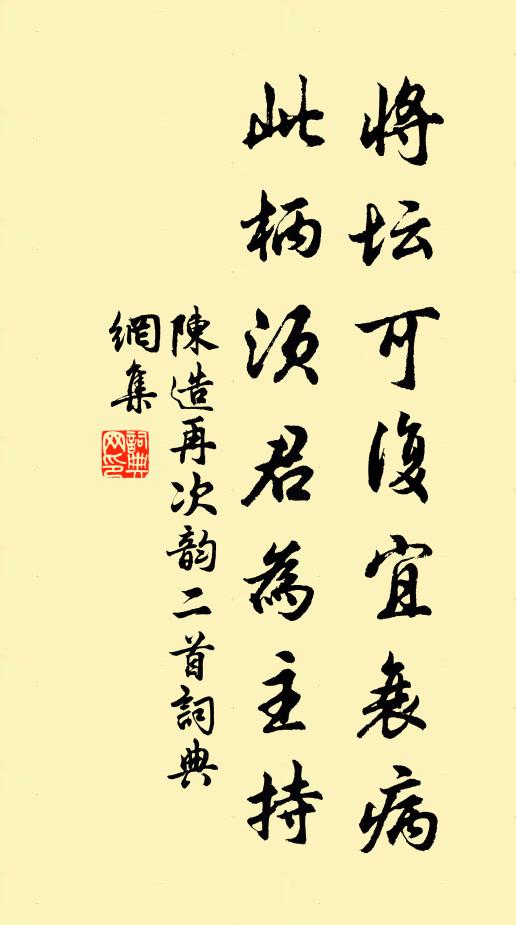 將坛可復宜衰病
此柄須君為主持
陳造再次韵二首詞典
網集
詞典网印